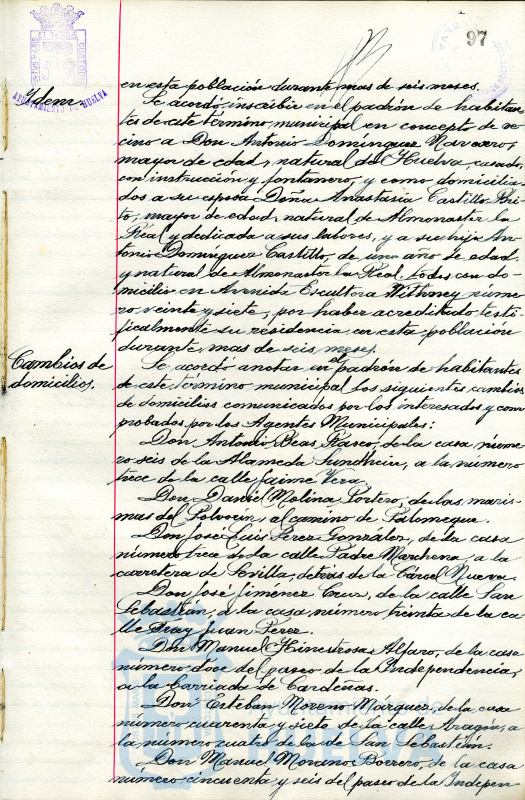 97
Idem.
AYUNTAMIENTO DE HUELVA
en esta población durante mas de seis meses.
Se acordó inscribir en el padrón de habitan-
tes de este término municipal en concepto de ve-
cino a Don Antonio Dominguez Navarro,
mayor de edad, natural de Huelva, casado,
con instrucción y fontanero, y como domicilia-
dos a su esposa Doña Anastasia Castillo Bri-
to, mayor de edad, natural de Almonaster la
Real y dedicada a sus labores, y a su hijo An-
tonio Domínguez Castillo, de un año de edad
y natural de Almonaster la Real, todos con do-
micilio en Avenida Escultora Withney núme-
ro veinte y siete, por haber acreditado testi-
ficalmente su residencia en esta población
durante mas de seis meses.
Cambios de
domicilios.
Se acordó anotar en el padrón de habitantes
de este termino municipal los siguientes cambios
de domicilios comunicados por los interesados y com-
probados por los Agentes Municipales:
Don Antonio Beas Rasco, de la casa núme-
ro seis de la Alameda Sundheim, a la número
trece de la calle Jaime Vera.
Don Daniel Molina Portero, de las maris-
mas del Polvorín, al camino de Palomeque.
Don José Luis Perez González, de la casa
número trece de la calle Padre Marchena, a la
carretera de Sevilla, detrás de la Cárcel Nueva.
Don José Jimenez Cruz, de la calle San
Sebastián, a la casa número treinta de la ca-
lle Fray Juan Perez.
Don Manuel Hinestrosa Alfaro, de la casa
número doce del paseo de la Independencia,
a la Barriada de Cardeñas.
Don Esteban Moreno Márquez, de la casa
número cuarenta y siete de la calle Aragón, a
la número cuatro de la de San Sebastián.
Don Manuel Morano Borrero, de la casa
número cincuenta y seis del paseo de la Indepen-